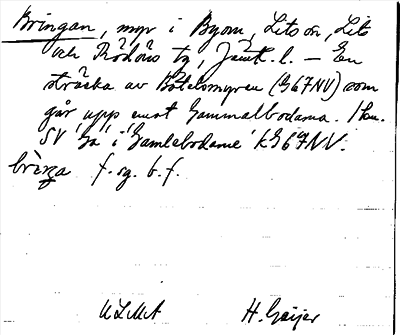 Bringan, myr i Byom, Lits sn, Lits
och Rödöns tg, Jämtl. l. – En
sträcka av Bötelsmyren (G67NV) som
går upp emot Gammalbodarna. 1 km.
SV 'Ga' i 'Gamlebodarne' kG67NV.
f. sg. b. f.
ULMA H. Geijer